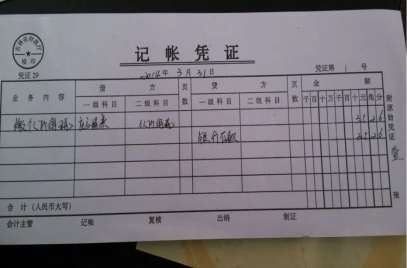 记帐凭证
凭证29 2014年3月31日 凭证第1号
业务内容 借方 页数 贷方 页数 金额
一级科目 二级科目 一级科目 二级科目 千百十万千百十元角分
缴个人所得税 个人所得税 3526
银行存款 3526
附原始凭证 张
合计（人民币大写）
会计主管 记帐 复核 出纳 制证